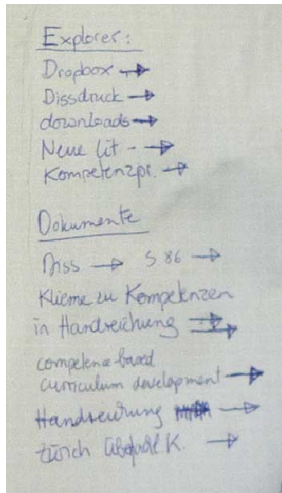 Explorer:
Dropbox →
Dissdruck →
downloads →
Neue Lit - →
Kompetenzpr. →
Dokumente
Diss → S 86 →
Klieme zu Kompetenzen
in Handreichung →
competence based
curriculum development →
Handreichung →
Zürich K. →